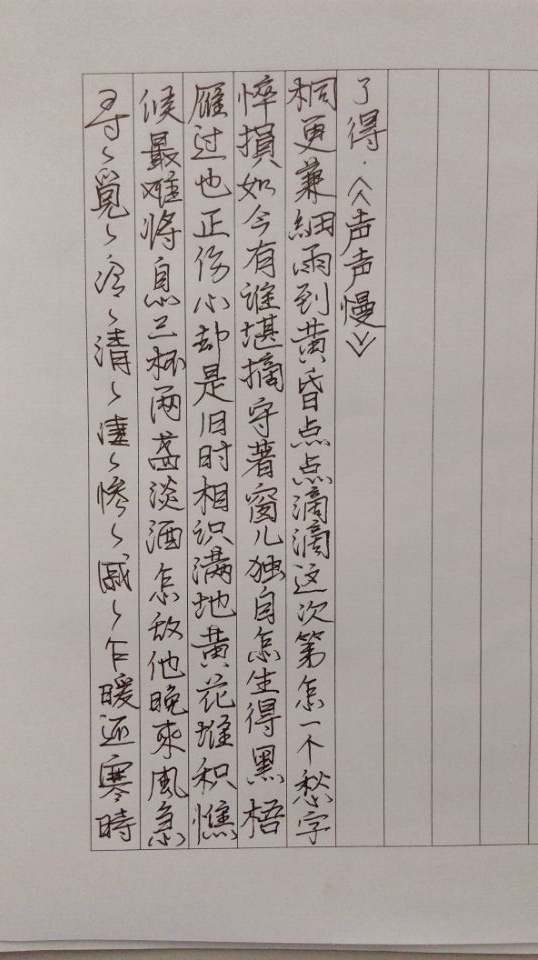 寻〻覓〻冷〻清〻淒〻惨〻戚〻乍暖还寒時
候最难将息三杯两盏淡酒怎敌他晚來風急
雁过也正伤心却是旧时相识满地黄花堆积憔
悴損如今有谁堪摘守著窗儿独自怎生得黑梧
桐更兼細雨到黄昏点点滴滴这次第怎一个愁字
了得.《声声慢》